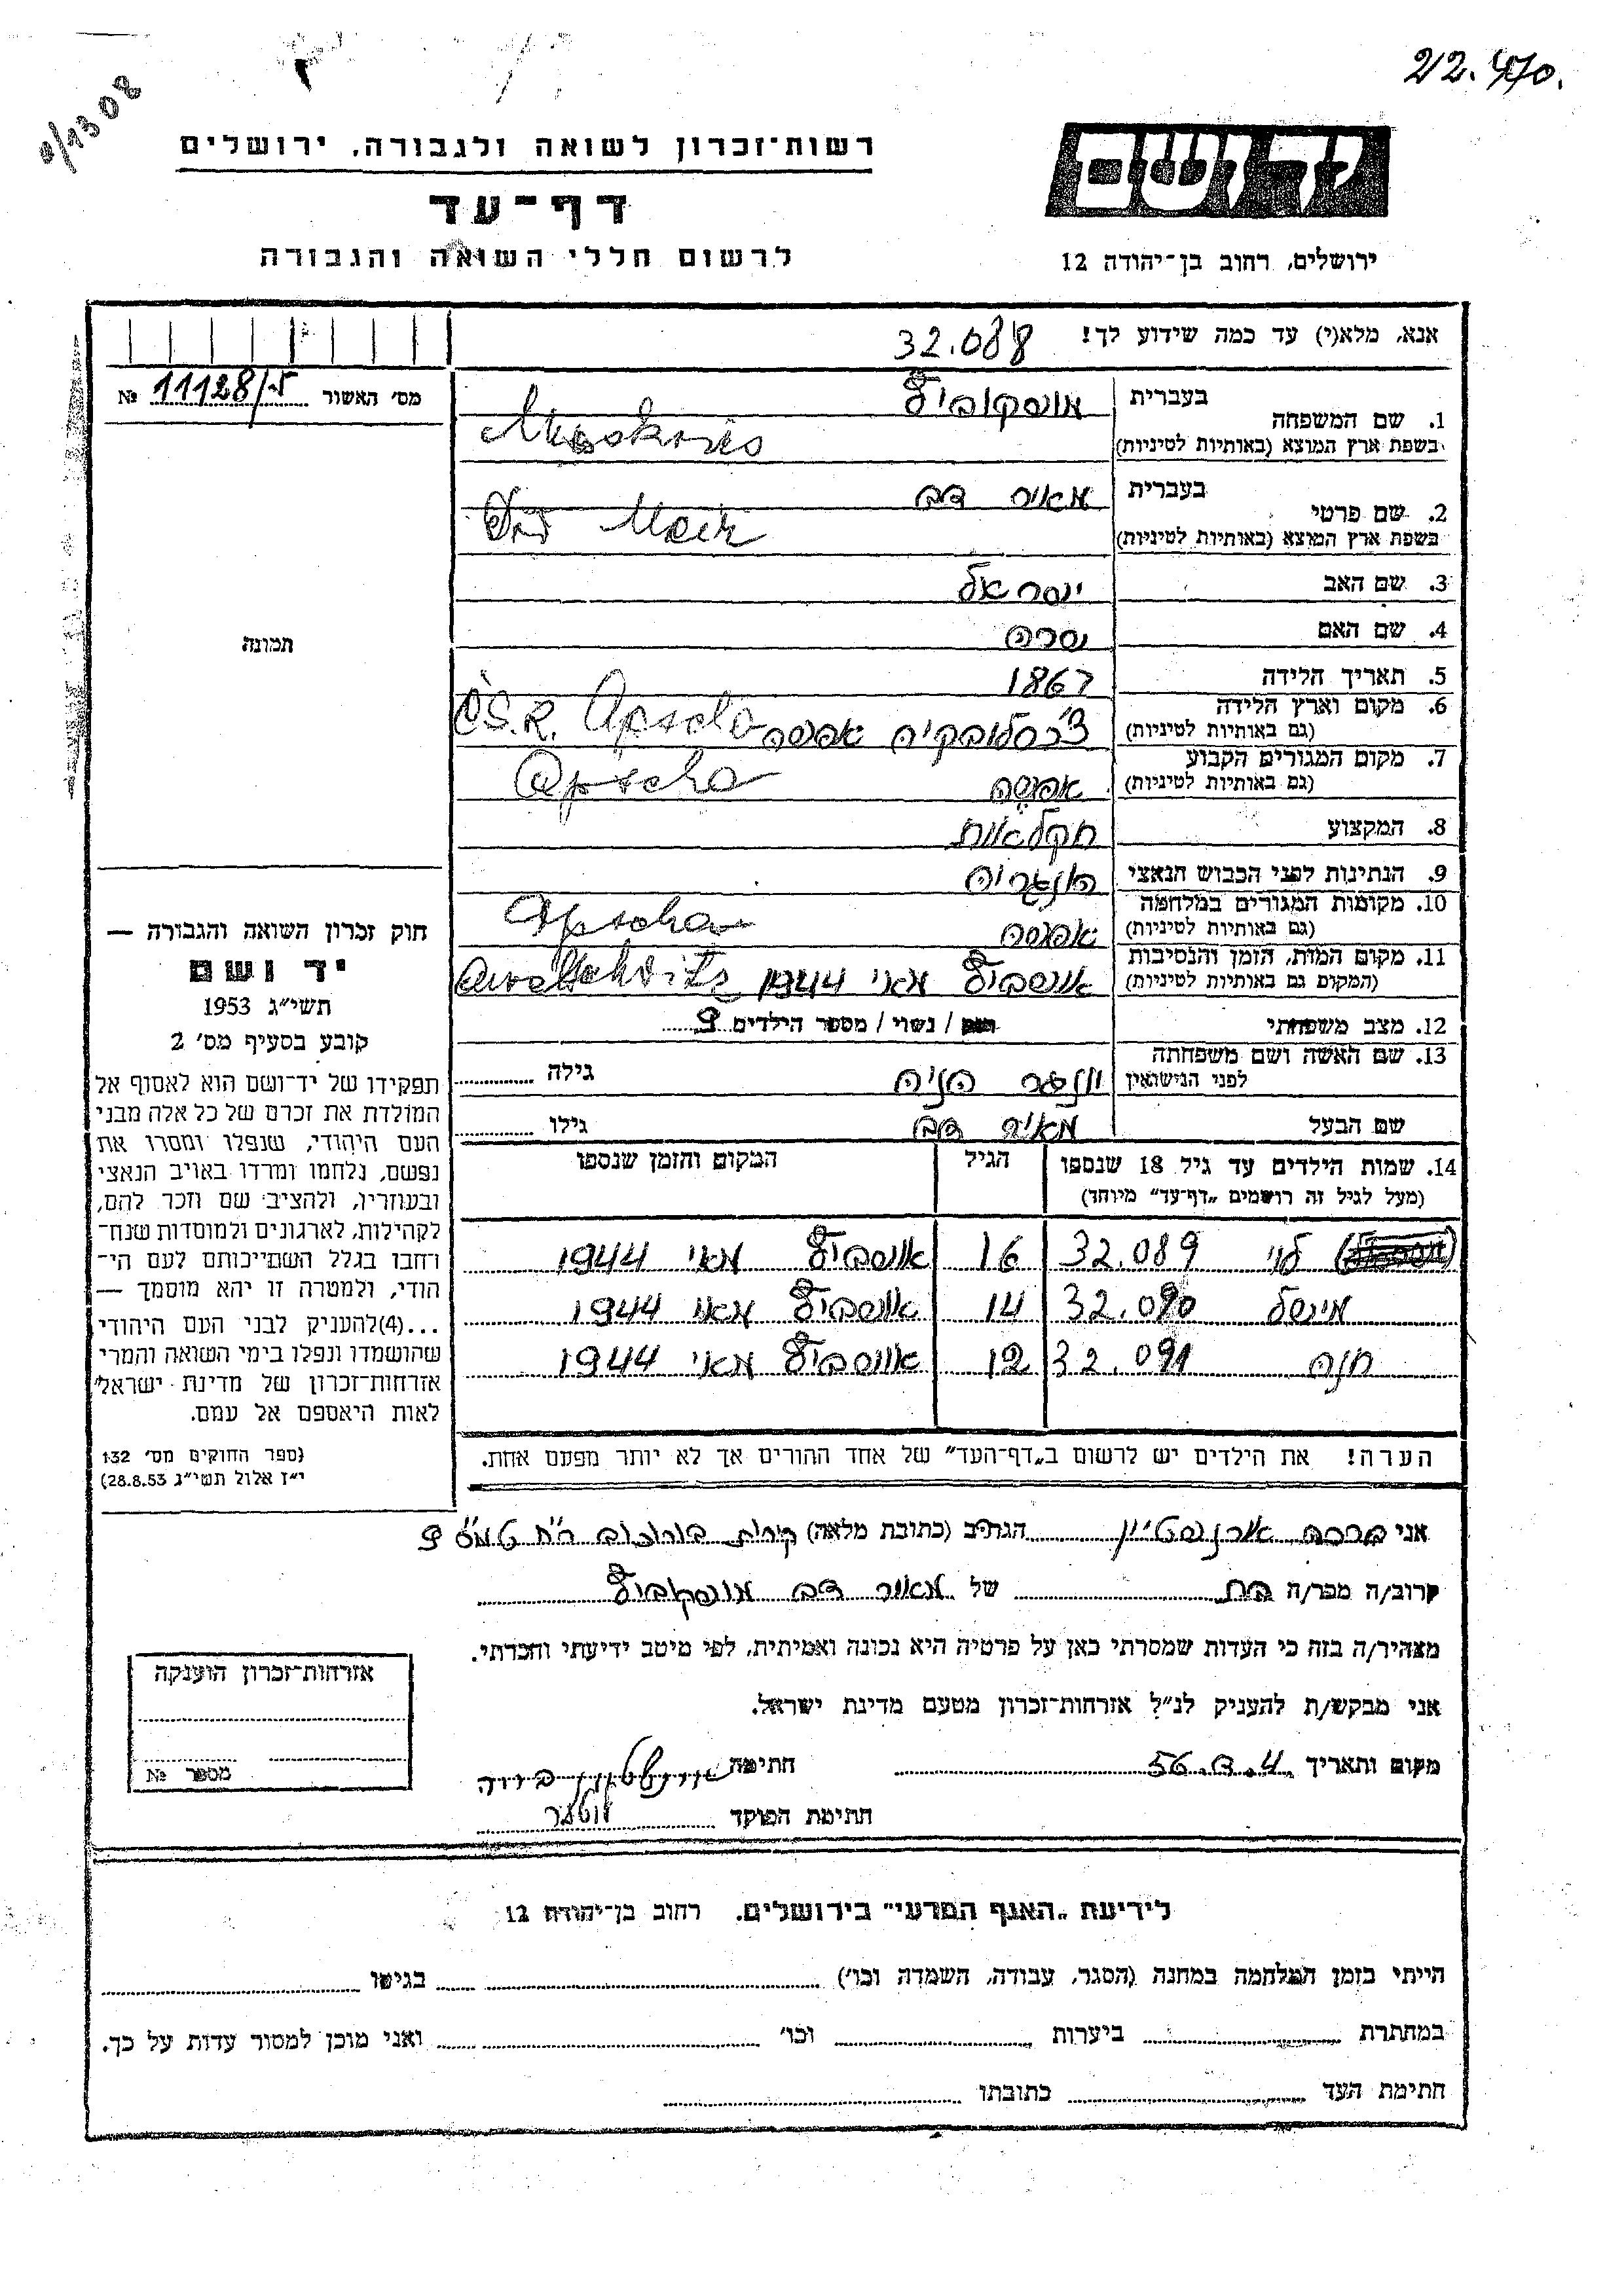 22.470.
יד ושם
רשות־זכרון לשואה ולגבורה, ירושלים
דף־עד
לרשום חללי השואה והגבורה
ירושלים, רחוב בן־יהודה 12
אנא, מלא(י) עד כמה שידוע לך! 32.088
מס׳ האשור 11128/ № 
1. שם המשפחה בעברית מושקוביץ
בשפת ארץ המוצא (באותיות לטיניות)
2. שם פרטי בעברית מאיר דב
בשפת ארץ המוצא (באותיות לטיניות) Meir
3. שם האב ישראל
4. שם האם שרה
5. תאריך הלידה 1867
6. מקום וארץ הלידה (גם באותיות לטיניות) צ׳כסלובקיה אפשה Č.S.R. Apscha
7. מקום המגורים הקבוע (גם באותיות לטיניות) אפשה Apscha
8. המקצוע חקלאות
9. הנתינות לפני הכבוש הנאצי הונגריה
10. מקומות המגורים במלחמה (גם באותיות לטיניות) אפשה Apscha
11. מקום המות, הזמן והנסיבות (המקום גם באותיות לטיניות) אושביץ מאי 1944
12. מצב משפחתי רווק / נשוי / מספר הילדים 9
13. שם האשה ושם משפחתה לפני הנישואין הניה גילה
שם הבעל מאיר דב גילו
14. שמות הילדים עד גיל 18 שנספו הגיל המקום והזמן שנספו
(מעל לגיל זה רושמים „דף־עד״ מיוחד)
לוי 32.089 16 אושביץ מאי 1944
מינשל 32.090 14 אושביץ מאי 1944
חנה 32.091 12 אושביץ מאי 1944
הערה! את הילדים יש לרשום ב„דף־העד״ של אחד ההורים אך לא יותר מפעם אחת.
תמונה
חוק זכרון השואה והגבורה —
יד ושם
תשי״ג 1953
קובע בסעיף מס׳ 2
תפקידו של יד־ושם הוא לאסוף אל
המולדת את זכרם של כל אלה מבני
העם היהודי, שנפלו ומסרו את
נפשם, נלחמו ומרדו באויב הנאצי
ובעוזריו, ולהציב שם וזכר להם,
לקהילות, לארגונים ולמוסדות שנח־
רחבו בגלל השתייכותם לעם הי־
הודי, ולמטרה זו יהא מוסמך —
...(4) להעניק לבני העם היהודי
שהושמדו ונפלו בימי השואה והמרי
אזרחות־זכרון של מדינת ישראל
לאות היאספם אל עמם.
(ספר החוקים מס׳ 132
י״ז אלול תשי״ג 28.8.53)
אני ברכה אורנשטיין הגר/ב (כתובת מלאה) קרית בורוכוב רח׳
קרוב/ה מכר/ה בת של מאיר דב מושקוביץ
מצהיר/ה בזה כי העדות שמסרתי כאן על פרטיה היא נכונה ואמיתית, לפי מיטב ידיעתי והכרתי.
אני מבקש/ת להעניק לנ״ל אזרחות־זכרון מטעם מדינת ישראל.
מקום ותאריך חתימה
חתימת הפוקד
אזרחות־זכרון הוענקה
מספר №
לידיעת „האגף המדעי״ בירושלים. רחוב בן־יהודה 12
הייתי בזמן המלחמה במחנה (הסגר, עבודה, השמדה וכו׳) בגיטו
במחתרת ביערות וכו׳ ואני מוכן למסור עדות על כך.
חתימת העד כתובתו